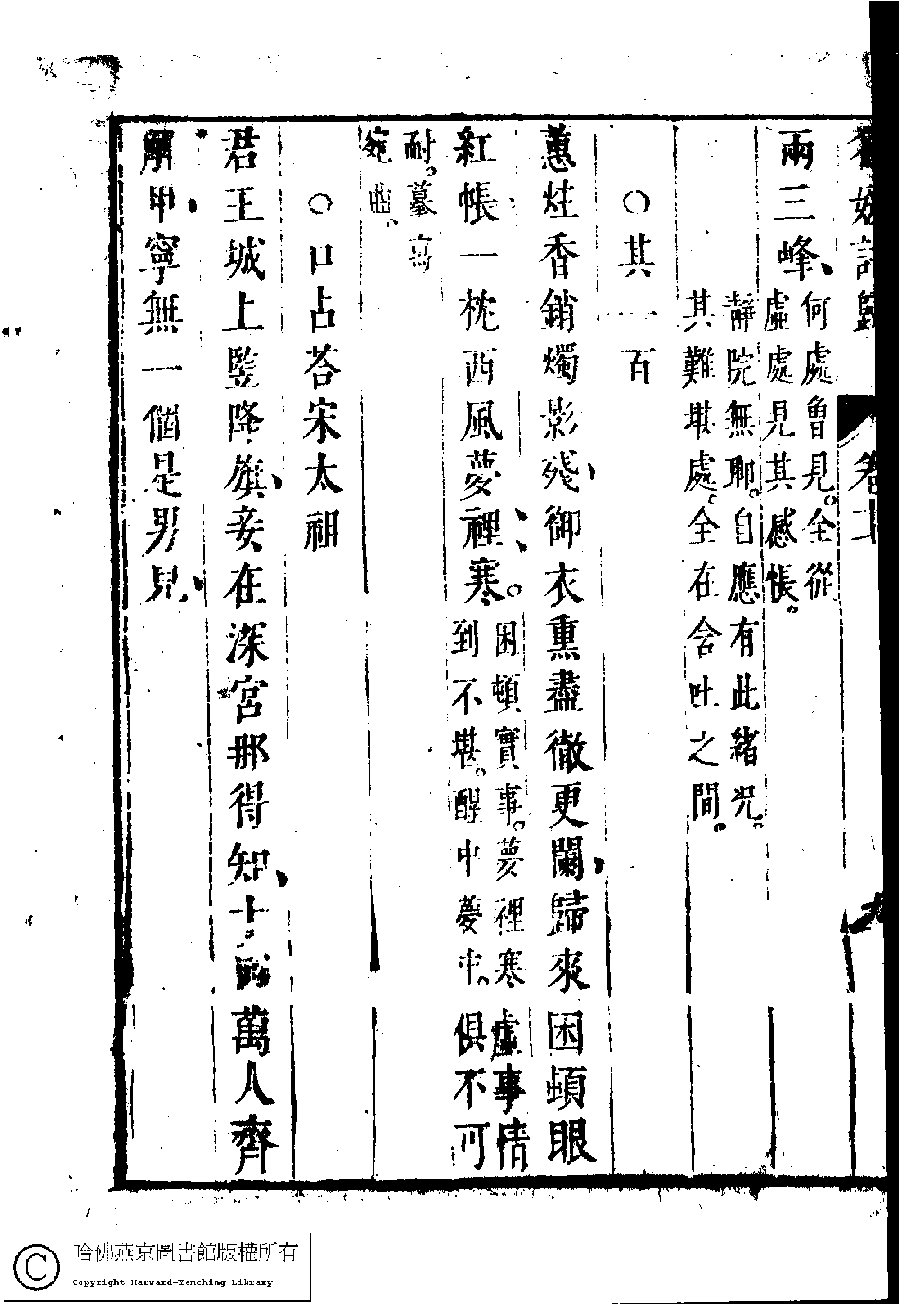 名媛詩歸 卷十 九
兩三峰、
何處魯見。全從
虛處見其感悵。
靜院無聊。自應有此緒况。
其難堪處。全在含吐之間。
○其一百
蕙炷香銷燭影殘、御衣熏盡徹更闌、歸來困頓眠
紅帳一枕西風夢裡寒。
困頓實事。夢裡寒虛事情
到不堪。醒中夢中。俱不可
耐。摹寫
宛曲、
○口占荅宋太祖
君王城上豎降旗、妾在深宮那得知、十四萬人齊
解甲、寧無一個是男兒、
哈佛燕京圖書館版權所有
Copyright Harvard-Yenching Library